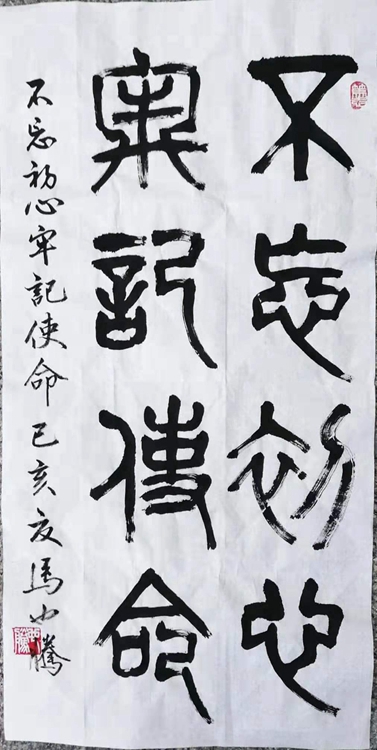 不忘初心
牢記使命
不忘初心牢記使命己亥夏馬也騰